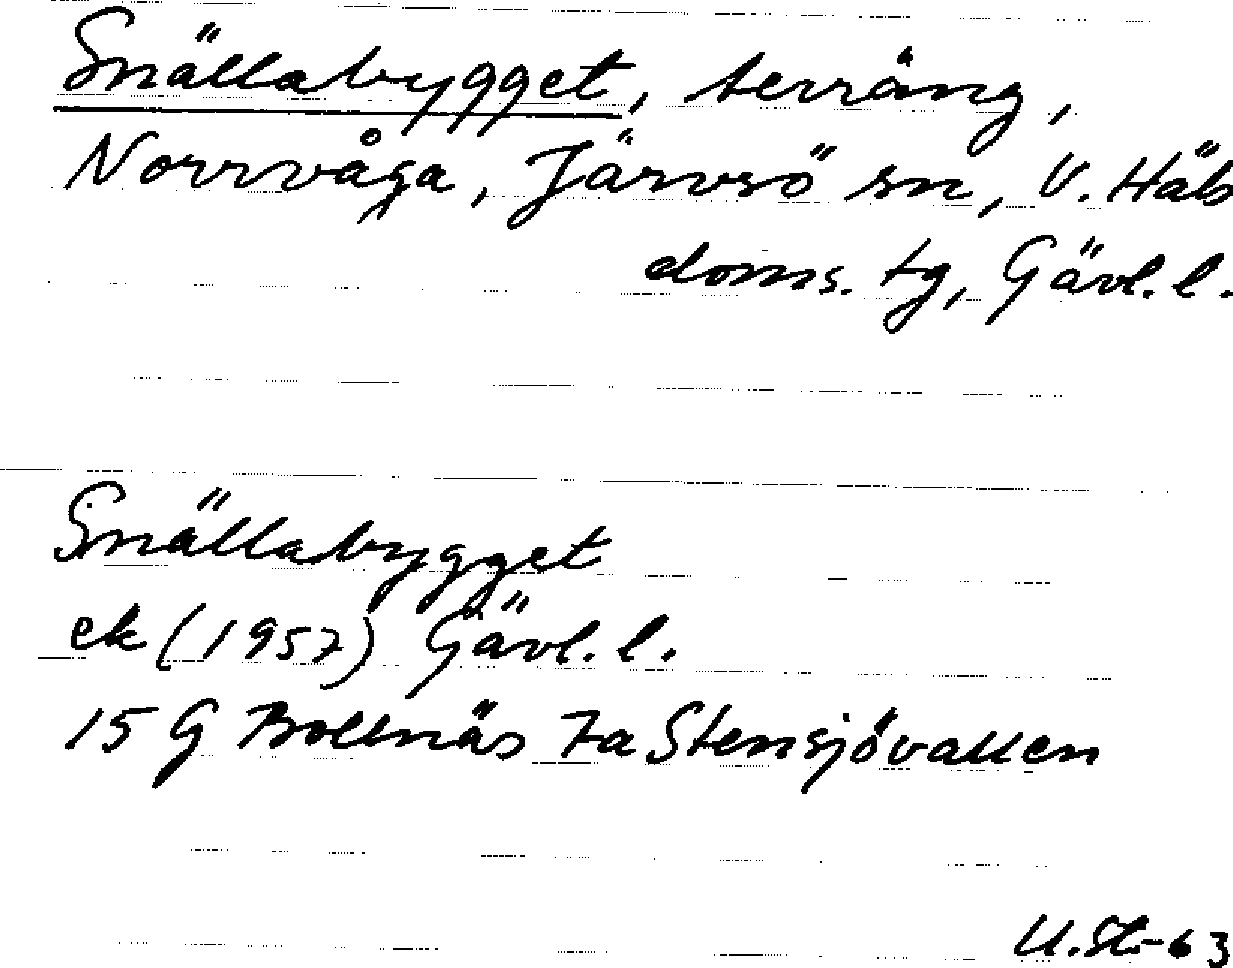 Snällabygget, terräng,
Norrvåga, Järvsö sn, V. Häls
doms. tg, Gävl. l.
Snällabygget
ek (1957) Gävl. l.
15 G Bollnäs 7a Stensjövallen
U.St-63